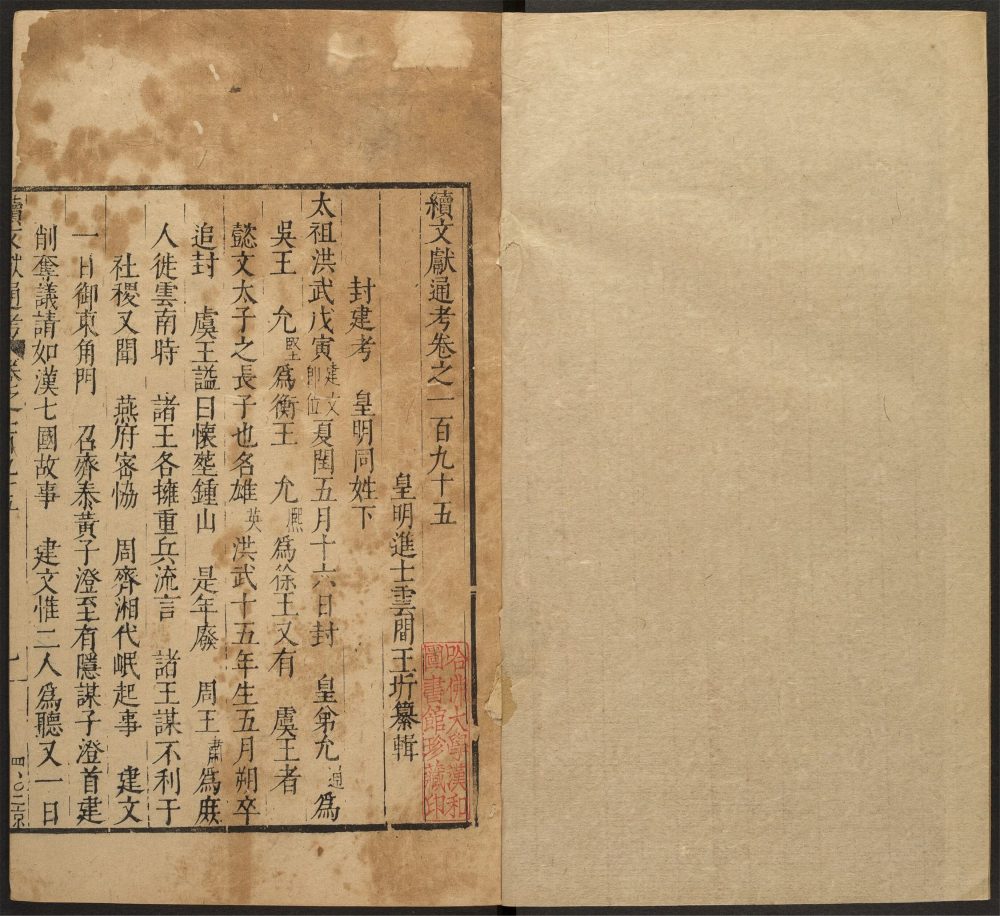 續文獻通考卷之一百九十五
皇明進士雲間王圻纂輯
封建考 皇明同姓下
太祖洪武戊寅建文即位夏閏五月十六日封 皇弟允𤐤為
吳王 允堅為衡王 允熈為徐王又有 虞王者
懿文太子之長子也名雄英洪武十五年生五月朔卒
追封 虞王謚曰懷塟鍾山 是年廢 周王橚為庻
人徙雲南時 諸王各擁重兵流言 諸王謀不利于
社稷又聞 燕府密恊 周齊湘代岷起事 建文
一日御東角門 召齊泰黃子澄至有隱謀子澄首建
削奪議請如漢七國故事 建文惟二人為聽又一日
續文獻通考 卷之一百九十五
哈佛大學漢和
圖書館珍藏印